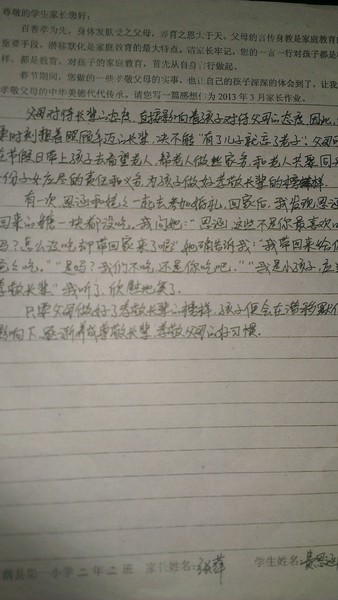 尊敬的学生家长您好:
百善孝为先,身体发肤受之父母,养育之恩大于天,父母的言传身教是家庭教育的
重要手段,潜移默化是家庭教育的最大特点,请家长牢记,您的一言一行对孩子都是
样,都是教育,对孩子的家庭教育,首先从自身言行做起。
春节期间,您做的一些孝敬父母的实事,也让自己的孩子深深的体会到了,让我
孝敬父母的中华美德代代传承,请您写一篇感想作为 2013 年 3 月家长作业。
父母对待长辈的态度,直接影响着孩子对待父母的态度,因此,
要时刻想着照顾年迈的长辈,决不能“有了儿子就忘了老子”,父母
在节假日带上孩子去看望老人,帮老人做些家务和老人共聚,同尽
一份子女应尽的责任和义务,为孩子做好孝敬长辈的榜样。
有一次,思涵和姥姥一起去参加婚礼,回家后,我发现思涵
回来的糖一块都没吃,我问她:“思涵,这些不是你最喜欢吃
吗?怎么没吃却带回家来了呢?”她明告诉我:“我带回来给你
姥姥吃。”“是吗?我们不吃,还是你吃吧。”“我是小孩子,应
孝敬长辈”我听了,欣慰地笑了。
只要父母做好了孝敬长辈的榜样,孩子便会在潜移默化
影响下,逐渐养成尊敬长辈、孝敬父母的好习惯。
县第一小学二年二班 家长姓名:张萍 学生姓名: